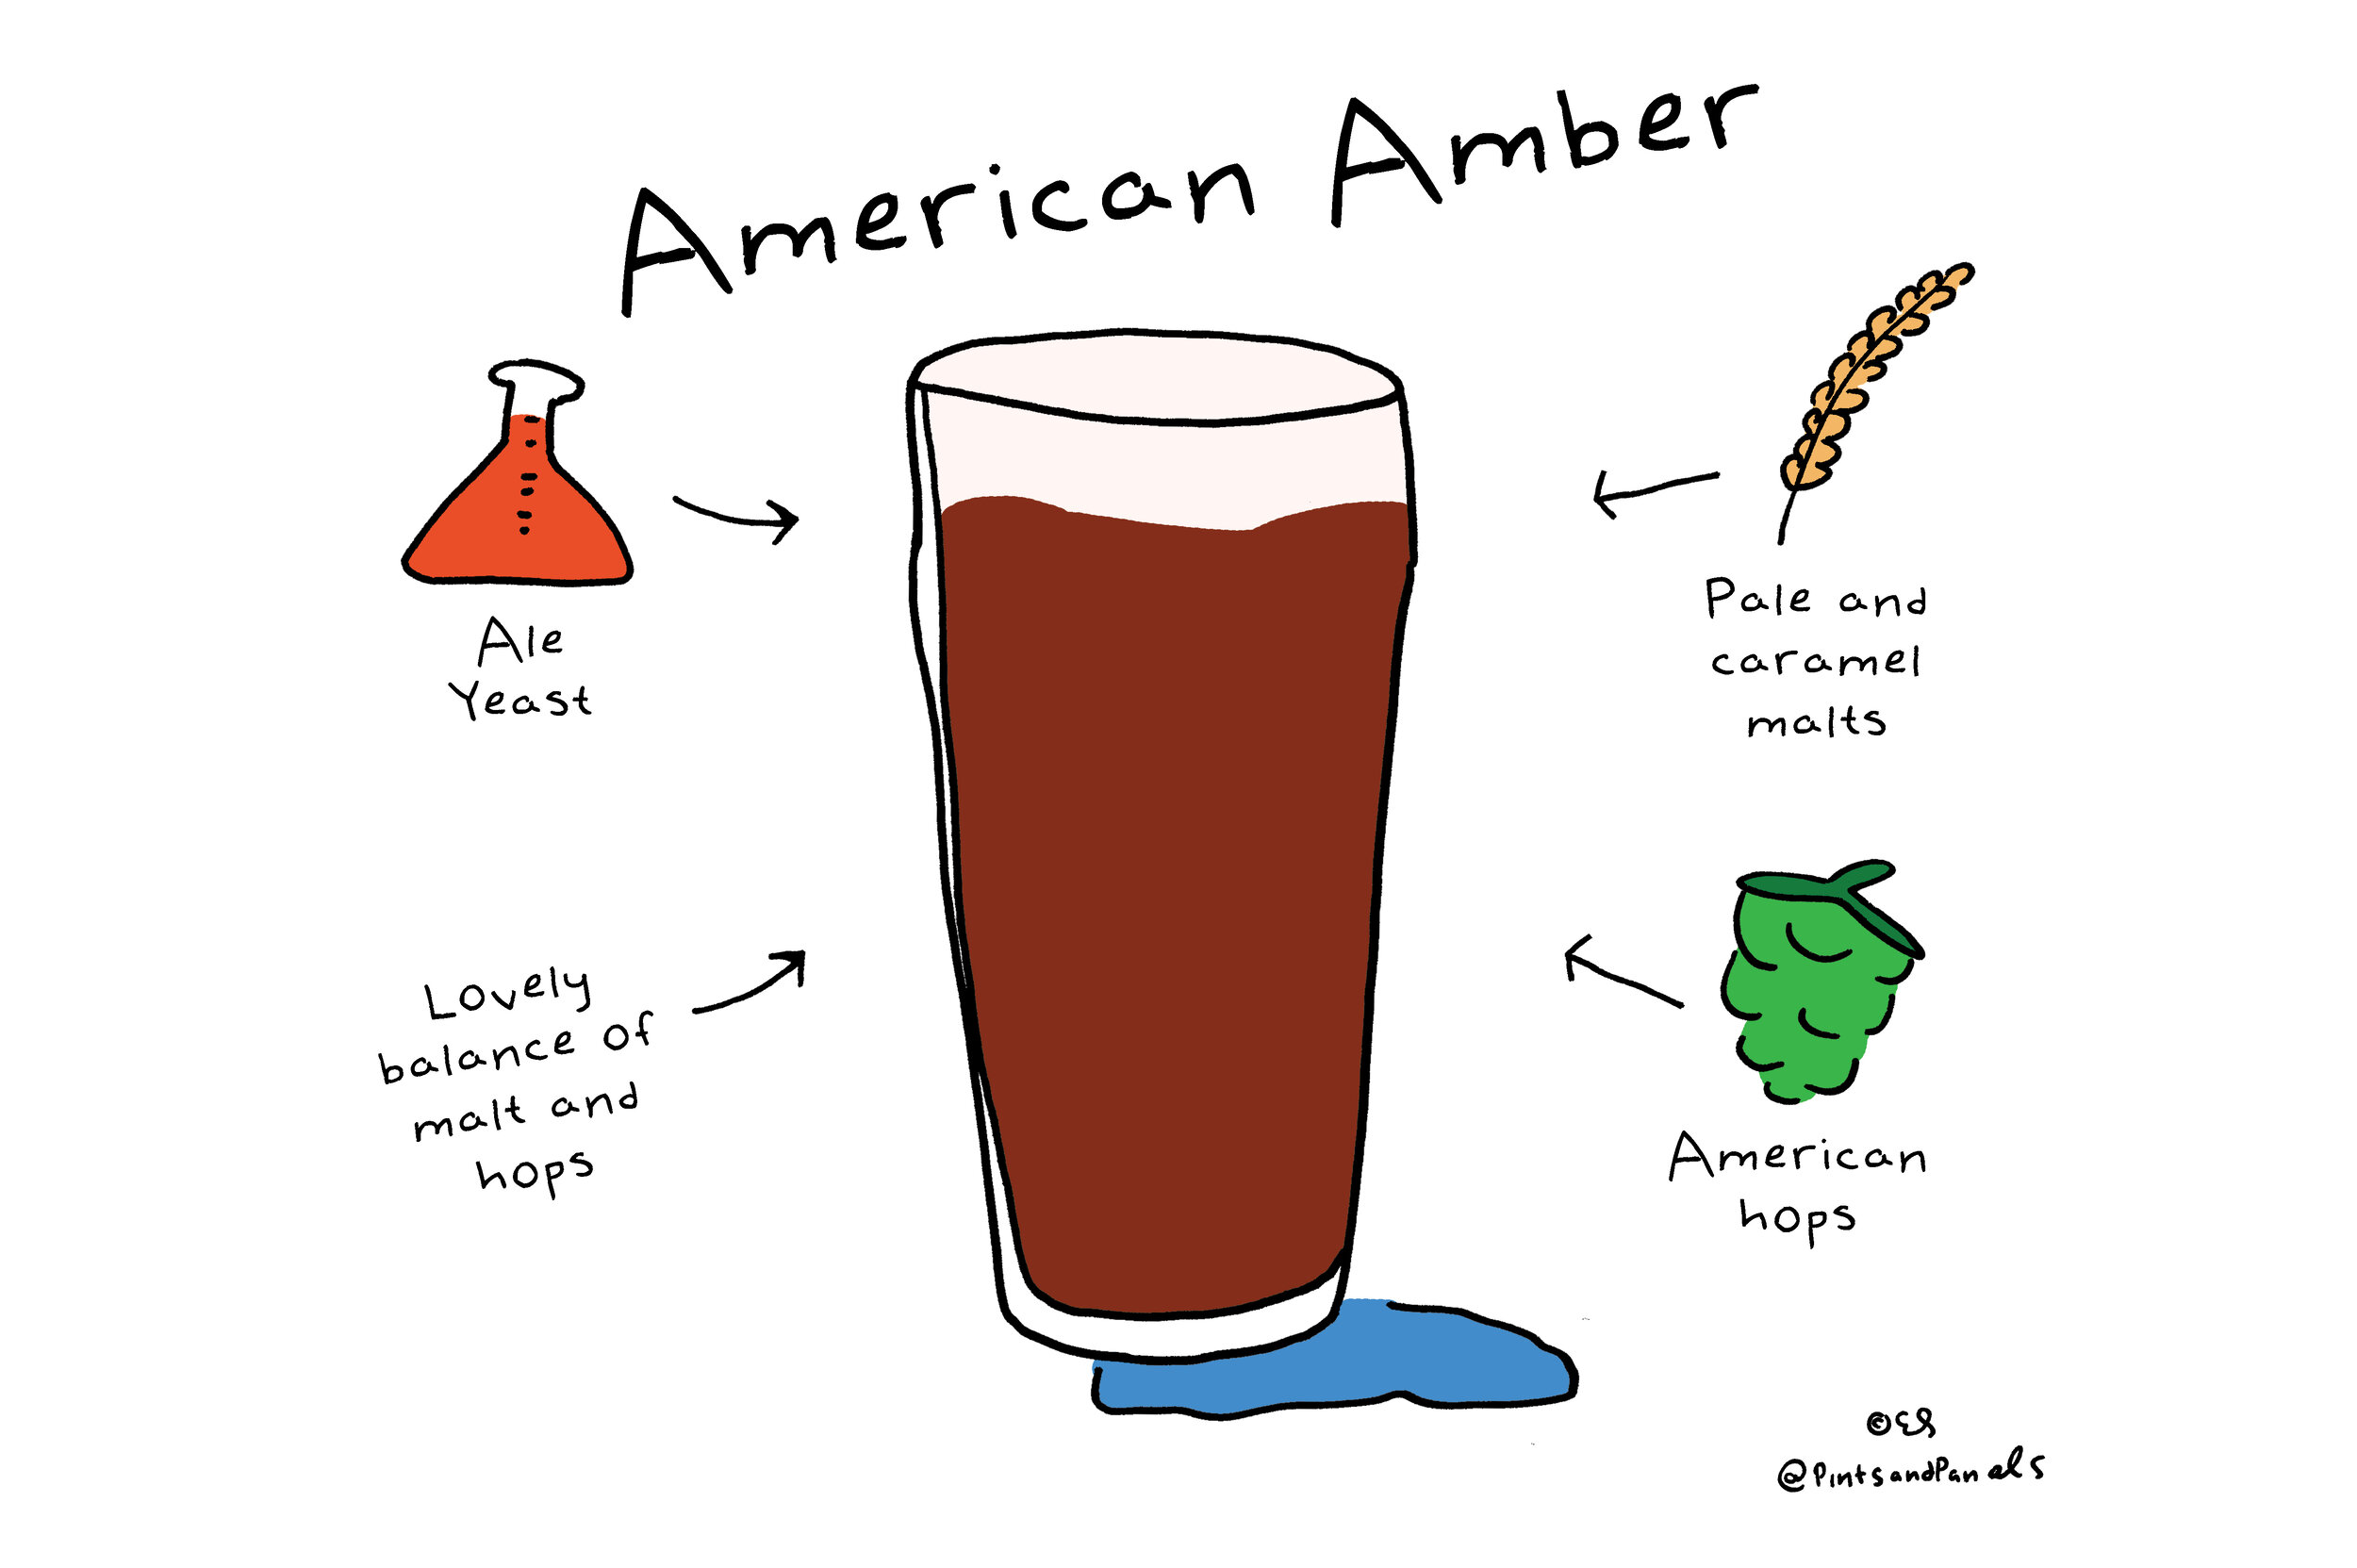 American Amber
Ale
Yeast
Pale and
caramel
malts
Lovely
balance of
malt and
hops
American
hops
©ES
@PintsandPanels